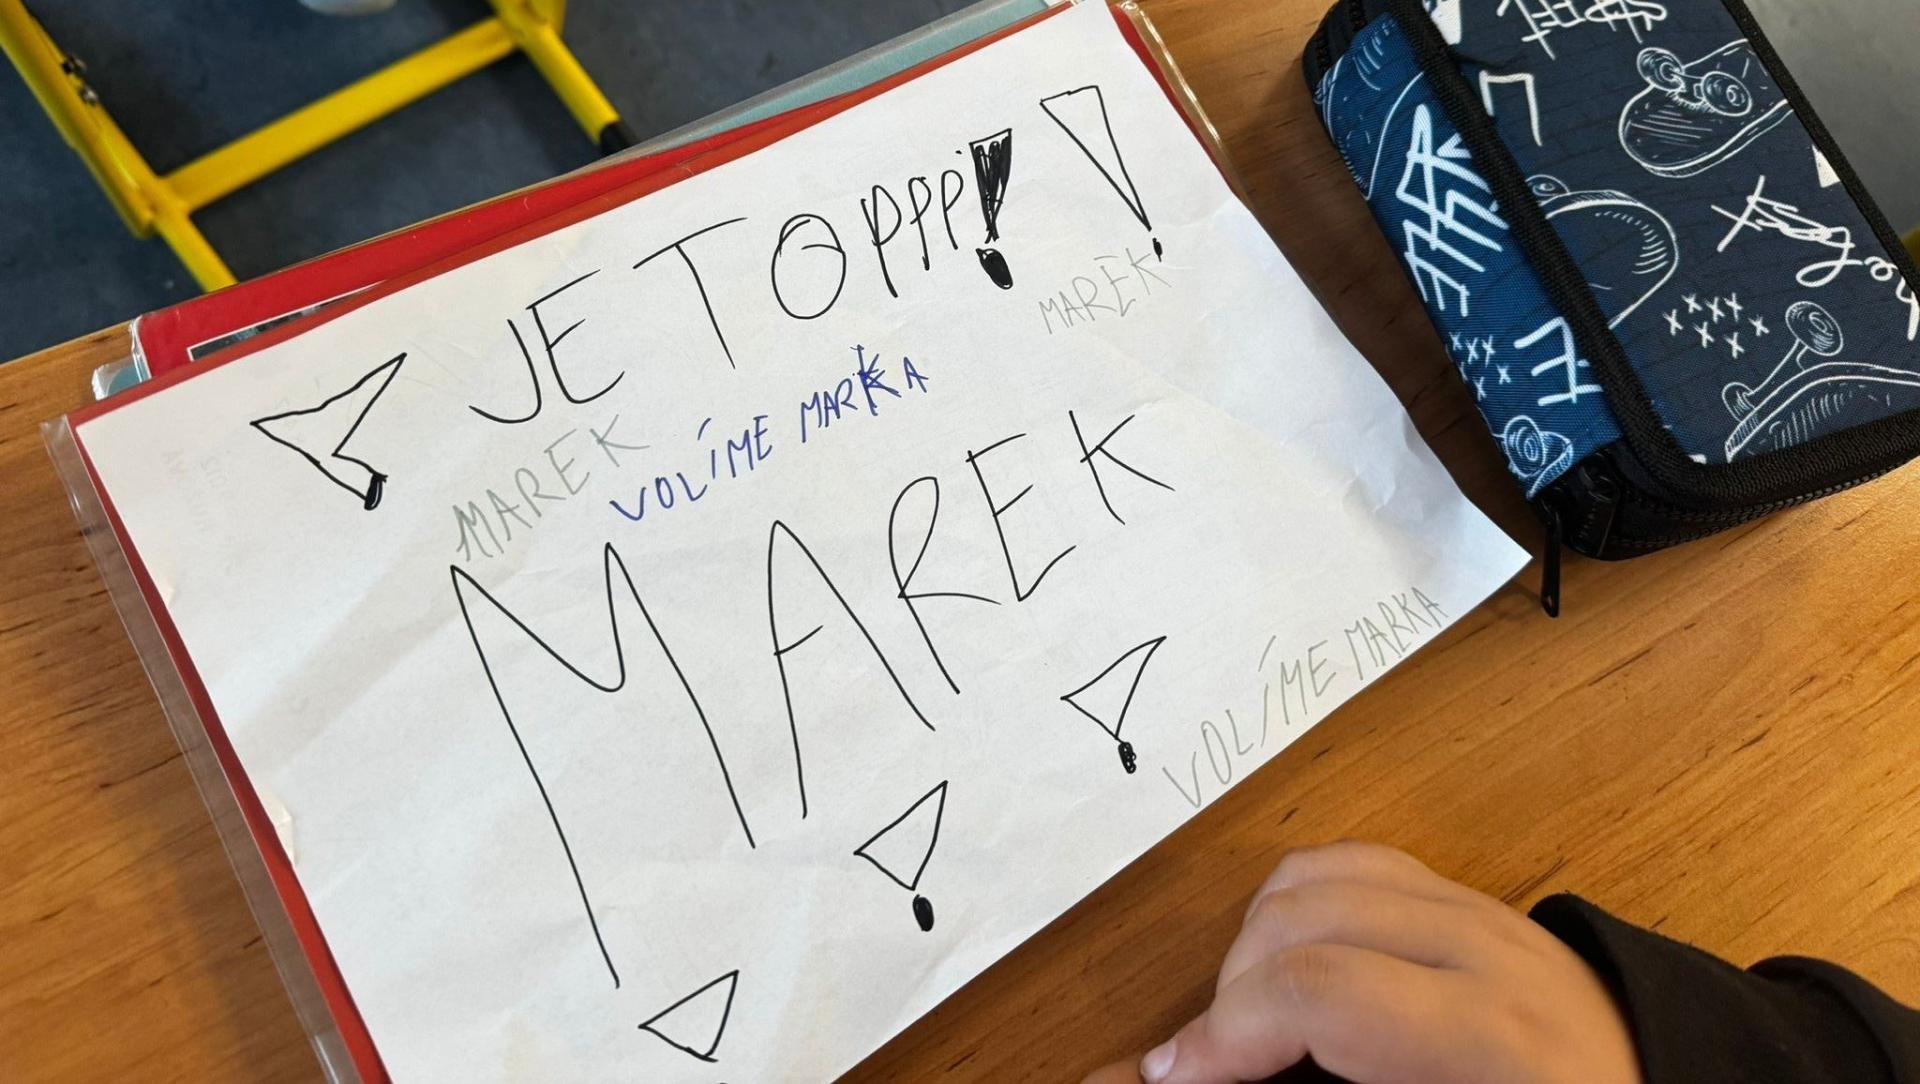 JE TOPPP!!
MAREK
MAREK
VOLÍME MARKA
MAREK
!
!
!
!
VOLÍME MARKA